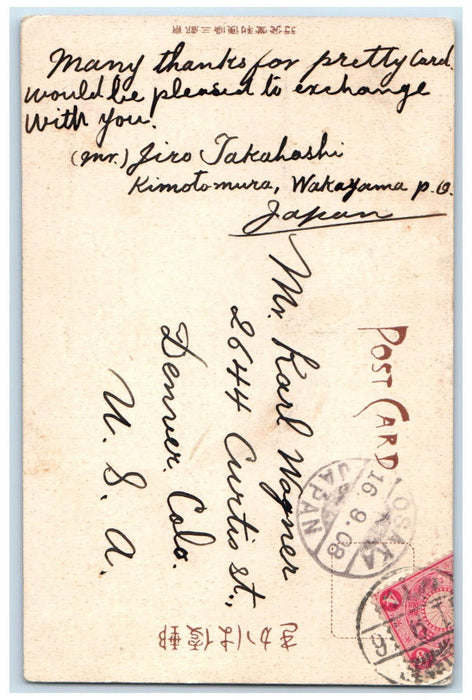 Many thanks for pretty card.
would be pleased to exchange
with you.
(Mr.) Jiro Takahashi
Kimotomura, Wakayama p.o.
Japan
Mr. Karl Wagner
2644 Curtis st.,
Denver. Colo.
U. S. A.
POST CARD
OSAKA
16.9.08
JAPAN
きかは便郵